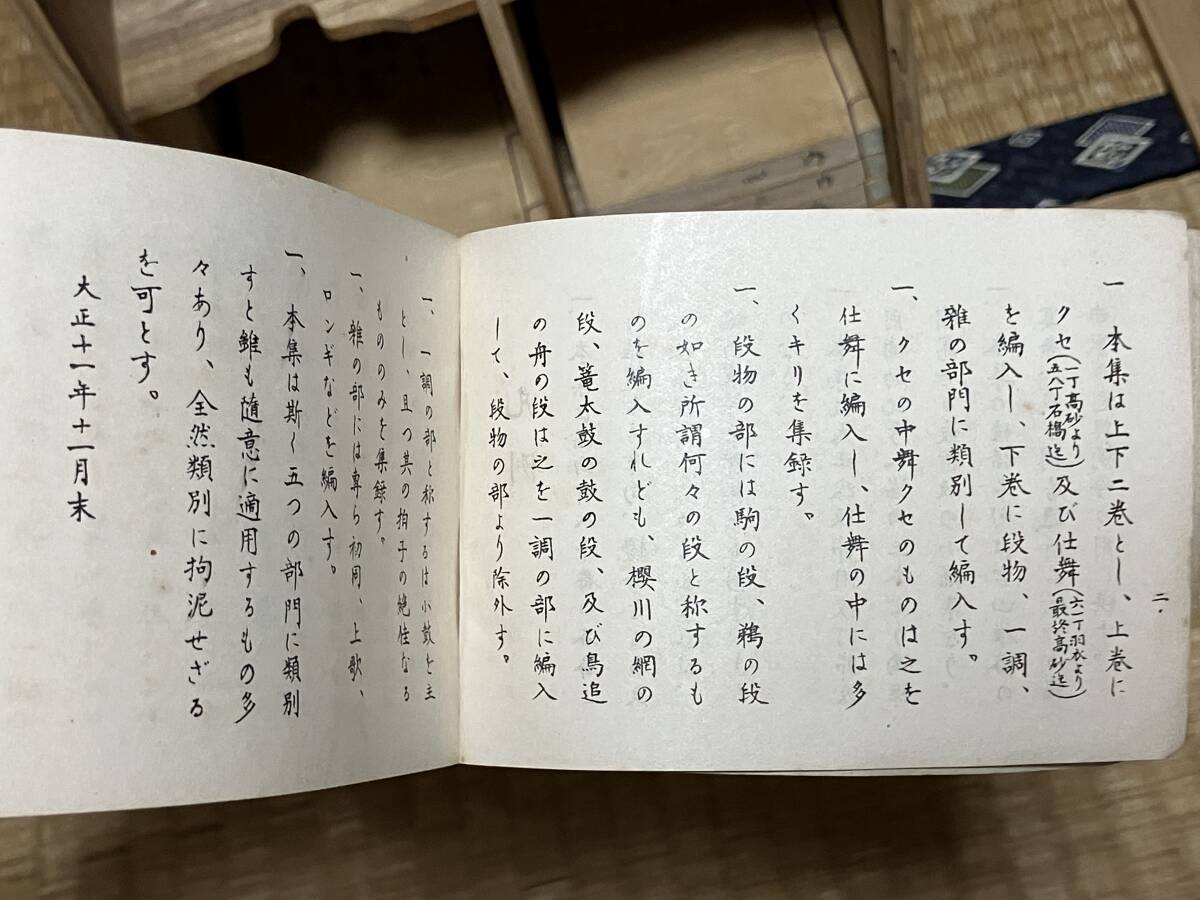 二.
一 本集は上下二巻とし、上巻に
クセ(一丁高砂より五八丁石橋迄)及び仕舞(六一丁羽衣より最終高砂迄)
を編入し、下巻に段物、一調、
雑の部門に類別して編入す。
一、クセの中舞クセのものは之を
仕舞に編入し、仕舞の中には多
くキリを集録す。
一、段物の部には駒の段、鵜の段
の如き所謂何々の段と称するも
のを編入すれども、櫻川の網の
段、篭太鼓の鼓の段、及び鳥追
の舟の段は之を一調の部に編入
して、段物の部より除外す。
一、一調の部と称するは小鼓を主
とし、且つ其の拍子の絶佳なる
もののみを集録す。
一、雑の部には専ら初同、上歌、
ロンギなどを編入す。
一、本集は斯く五つの部門に類別
すと雖も随意に適用するもの多
々あり、全然類別に拘泥せざる
を可とす。
大正十一年十一月末